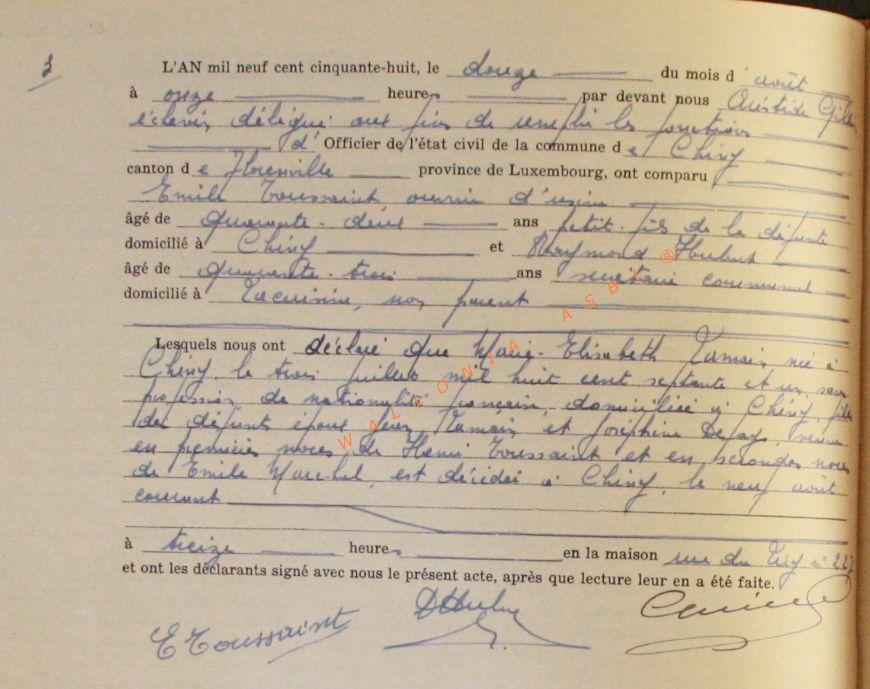 3
L'AN mil neuf cent cinquante-huit, le douze du mois d'août
à onze heures par devant nous Aristide
échevin délégué aux fins de remplir les fonctions
d' Officier de l'état civil de la commune de Chiny
canton de Florenville province de Luxembourg, ont comparu
Emile Toussaint ouvrier d'usine
âgé de quarante-deux ans petit-fils de la défunte
domicilié à Chiny et Raymond Hubert
âgé de quarante-trois ans secrétaire communal
domicilié à non parent
Lesquels nous ont déclaré que Marie-Elisabeth née à
Chiny, le trois juillet mil huit cent septante et un, sans
profession, de nationalité française, domiciliée à Chiny, fille
des défunts époux et Joséphine veuve
en premières noces de Henri Toussaint et en secondes noces
de Emile Maréchal, est décédée à Chiny, le neuf août
courant
à treize heures en la maison rue du n° 227
et ont les déclarants signé avec nous le présent acte, après que lecture leur en a été faite.
E Toussaint
WALLONIA ASBL ®